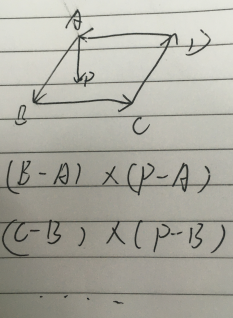 A
D
P
B
C
(B-A) × (P-A)
(C-B) × (P-B)
.....